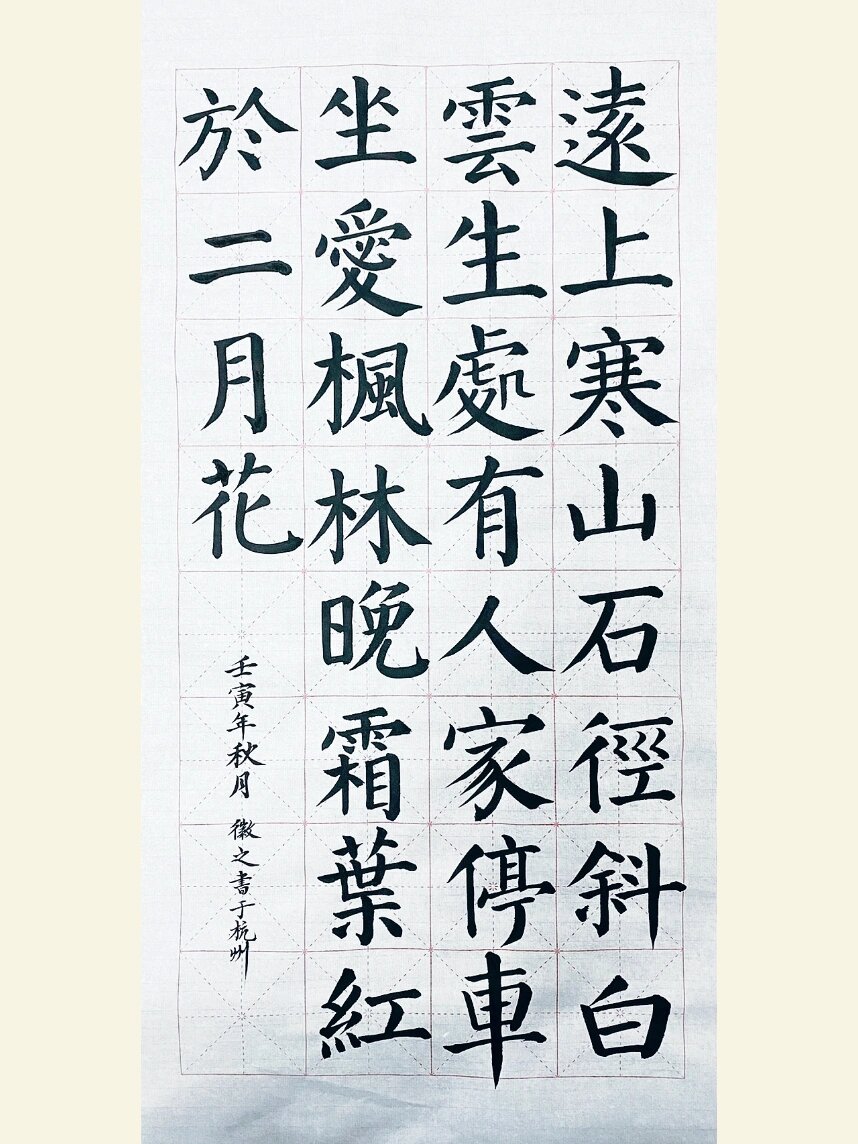 遠上寒山石徑斜白
雲生處有人家停車
坐愛楓林晚霜葉紅
於二月花
壬寅年秋月 徽之書于杭州